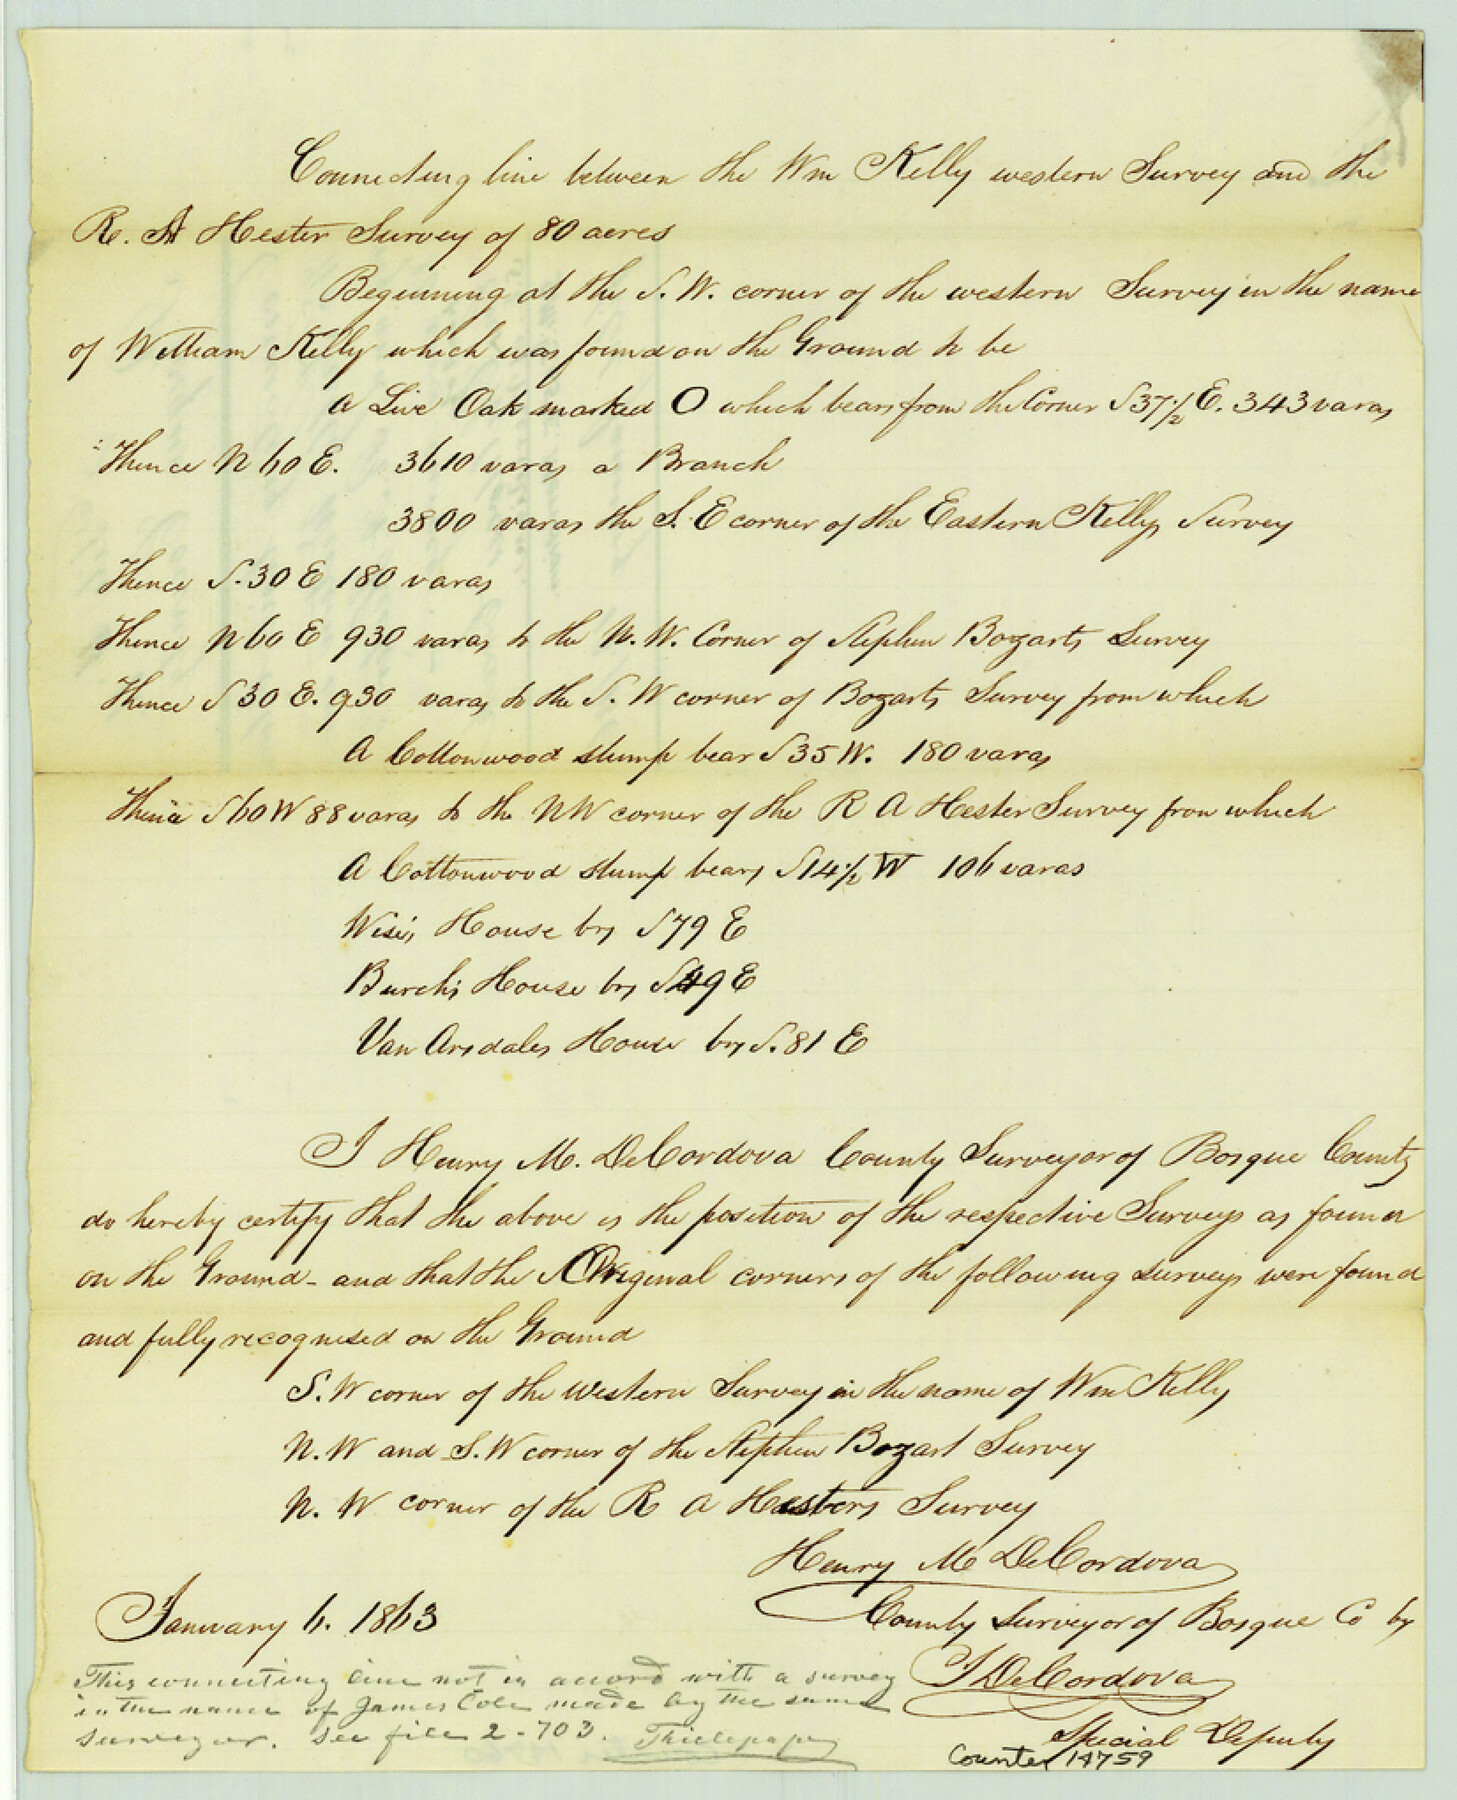 Connecting line between the Wm Kelly western Survey and the
R. A Hester Survey of 80 acres
Beginning at the S. W. corner of the western Survey in the name
of William Kelly which was found on the Ground to be
A Live Oak marked O which bears from the Corner S 37 1/2 E. 343 varas
Thence N 60 E. 3610 varas a Branch
3800 varas the S. E corner of the Eastern Kelly Survey
Thence S. 30 E 180 varas
Thence N 60 E 930 varas to the N. W. Corner of Stephen Bozarts Survey
Thence S 30 E. 930 varas to the S. W corner of Bozarts Survey from which
A Cottonwood stump bear S 35 W. 180 varas
Thence S 60 W 88 varas to the N W corner of the R A Hester Survey from which
A Cottonwood stump bears S 14 1/2 W 106 varas
Wise's House brs S 79 E
Burch's House brs S 49 E
Van Arsdales House brs S. 81 E
I Henry M. DeCordova County Surveyor of Bosque County
do hereby certify that the above is the position of the respective Surveys as found
on the Ground - and that the Original corners of the following surveys were found
and fully recognised on the Ground
S. W corner of the western Survey in the name of Wm Kelly
N. W and S. W corner of the Stephen Bozart Survey
N. W corner of the R A Hesters Survey
Henry M DeCordova
County Surveyor of Bosque Co by
January 6. 1863
J DeCordova
Special Deputy
This connecting line not in accord with a survey
in the name of James Cole made by the same
surveyor. See file 2-703. Thielepape
Counter 14759